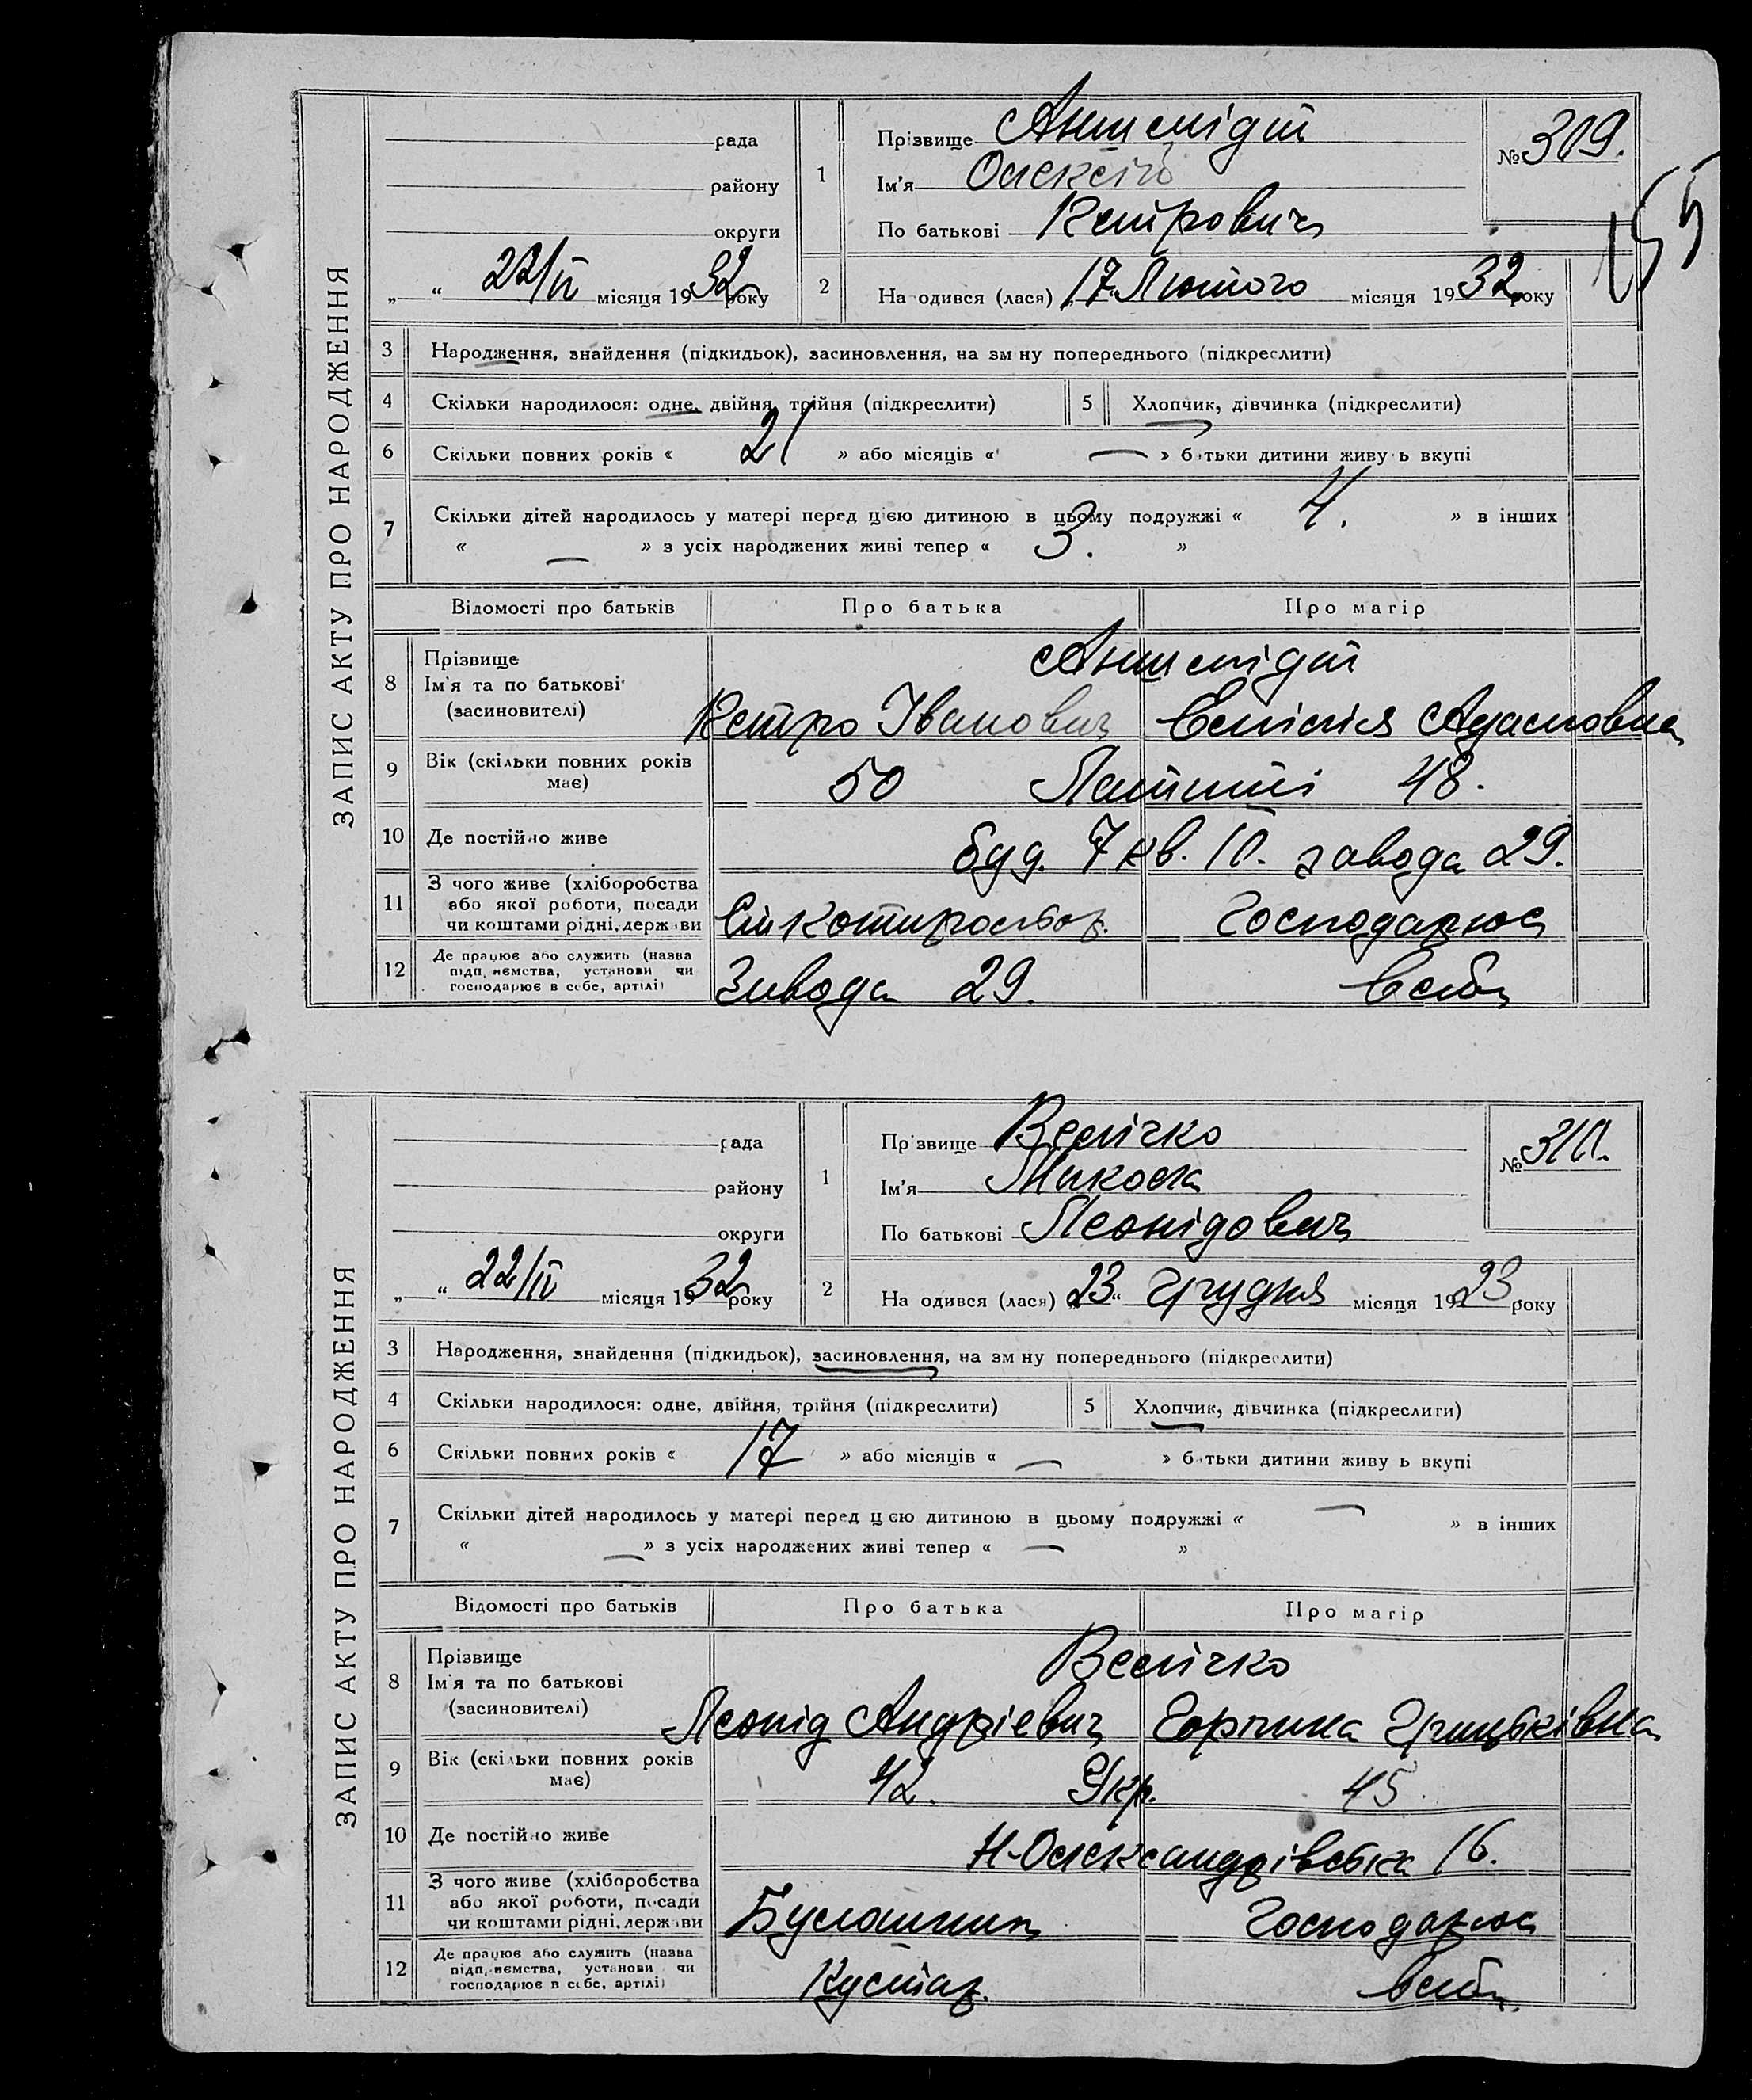 ЗАПИС АКТУ ПРО НАРОДЖЕННЯ
рада
району
округи
„ “ 22/IV місяця 1932 року
1 Прізвище Аншмідт
Ім'я Олексій
По батькові Петрович
№ 309.
155
2 На одився (лася) 17 Лютого місяця 1932 року
3 Народження, знайдення (підкидьок), засиновлення, на зм ну попереднього (підкреслити)
4 Скільки народилося: одне, двійня, трійня (підкреслити)
5 Хлопчик, дівчинка (підкреслити)
6 Скільки повних років « 21 » або місяців « — » батьки дитини живуть вкупі
7 Скільки дітей народилось у матері перед цією дитиною в цьому подружжі « 4. » в інших
« — » з усіх народжених живі тепер « 3. »
Відомості про батьків Про батька Про матір
8 Прізвище
Ім'я та по батькові
(засиновителі)
Аншмідт
Петро Іванович Емілія Адамовна
9 Вік (скільки повних років має) 50 Латиші 48.
10 Де постійно живе буд. 7 кв. 10. завода 29.
11 З чого живе (хліборобства
або якої роботи, посади
чи коштами рідні, держави
Господарює
12 Де працює або служить (назва
підприємства, установи чи
господарює в себе, артілі)
Завода 29. в себе
ЗАПИС АКТУ ПРО НАРОДЖЕННЯ
рада
району
округи
„ “ 22/IV місяця 1932 року
1 Прізвище Велічко
Ім'я Микола
По батькові Леонідович
№ 310.
2 На одився (лася) „23“ Грудня місяця 1923 року
3 Народження, знайдення (підкидьок), засиновлення, на зм ну попереднього (підкреслити)
4 Скільки народилося: одне, двійня, трійня (підкреслити)
5 Хлопчик, дівчинка (підкреслити)
6 Скільки повних років « 17 » або місяців « — » батьки дитини живу ь вкупі
7 Скільки дітей народилось у матері перед цєю дитиною в цьому подружжі « — » в інших
« — » з усіх народжених живі тепер « — »
Відомості про батьків Про батька Про матір
8 Прізвище
Ім'я та по батькові
(засиновителі)
Велічко
Леонід Андрієвич Горпина Грицьківна
9 Вік (скільки повних років має) 42. Укр. 45.
10 Де постійно живе Н-Олександрівська 16.
11 З чого живе (хліборобства
або якої роботи, посади
чи коштами рідні, держави
Булошник Господарює
12 Де працює або служить (назва
підприємства, установи чи
господарює в себе, артілі)
Кустар. в себе.